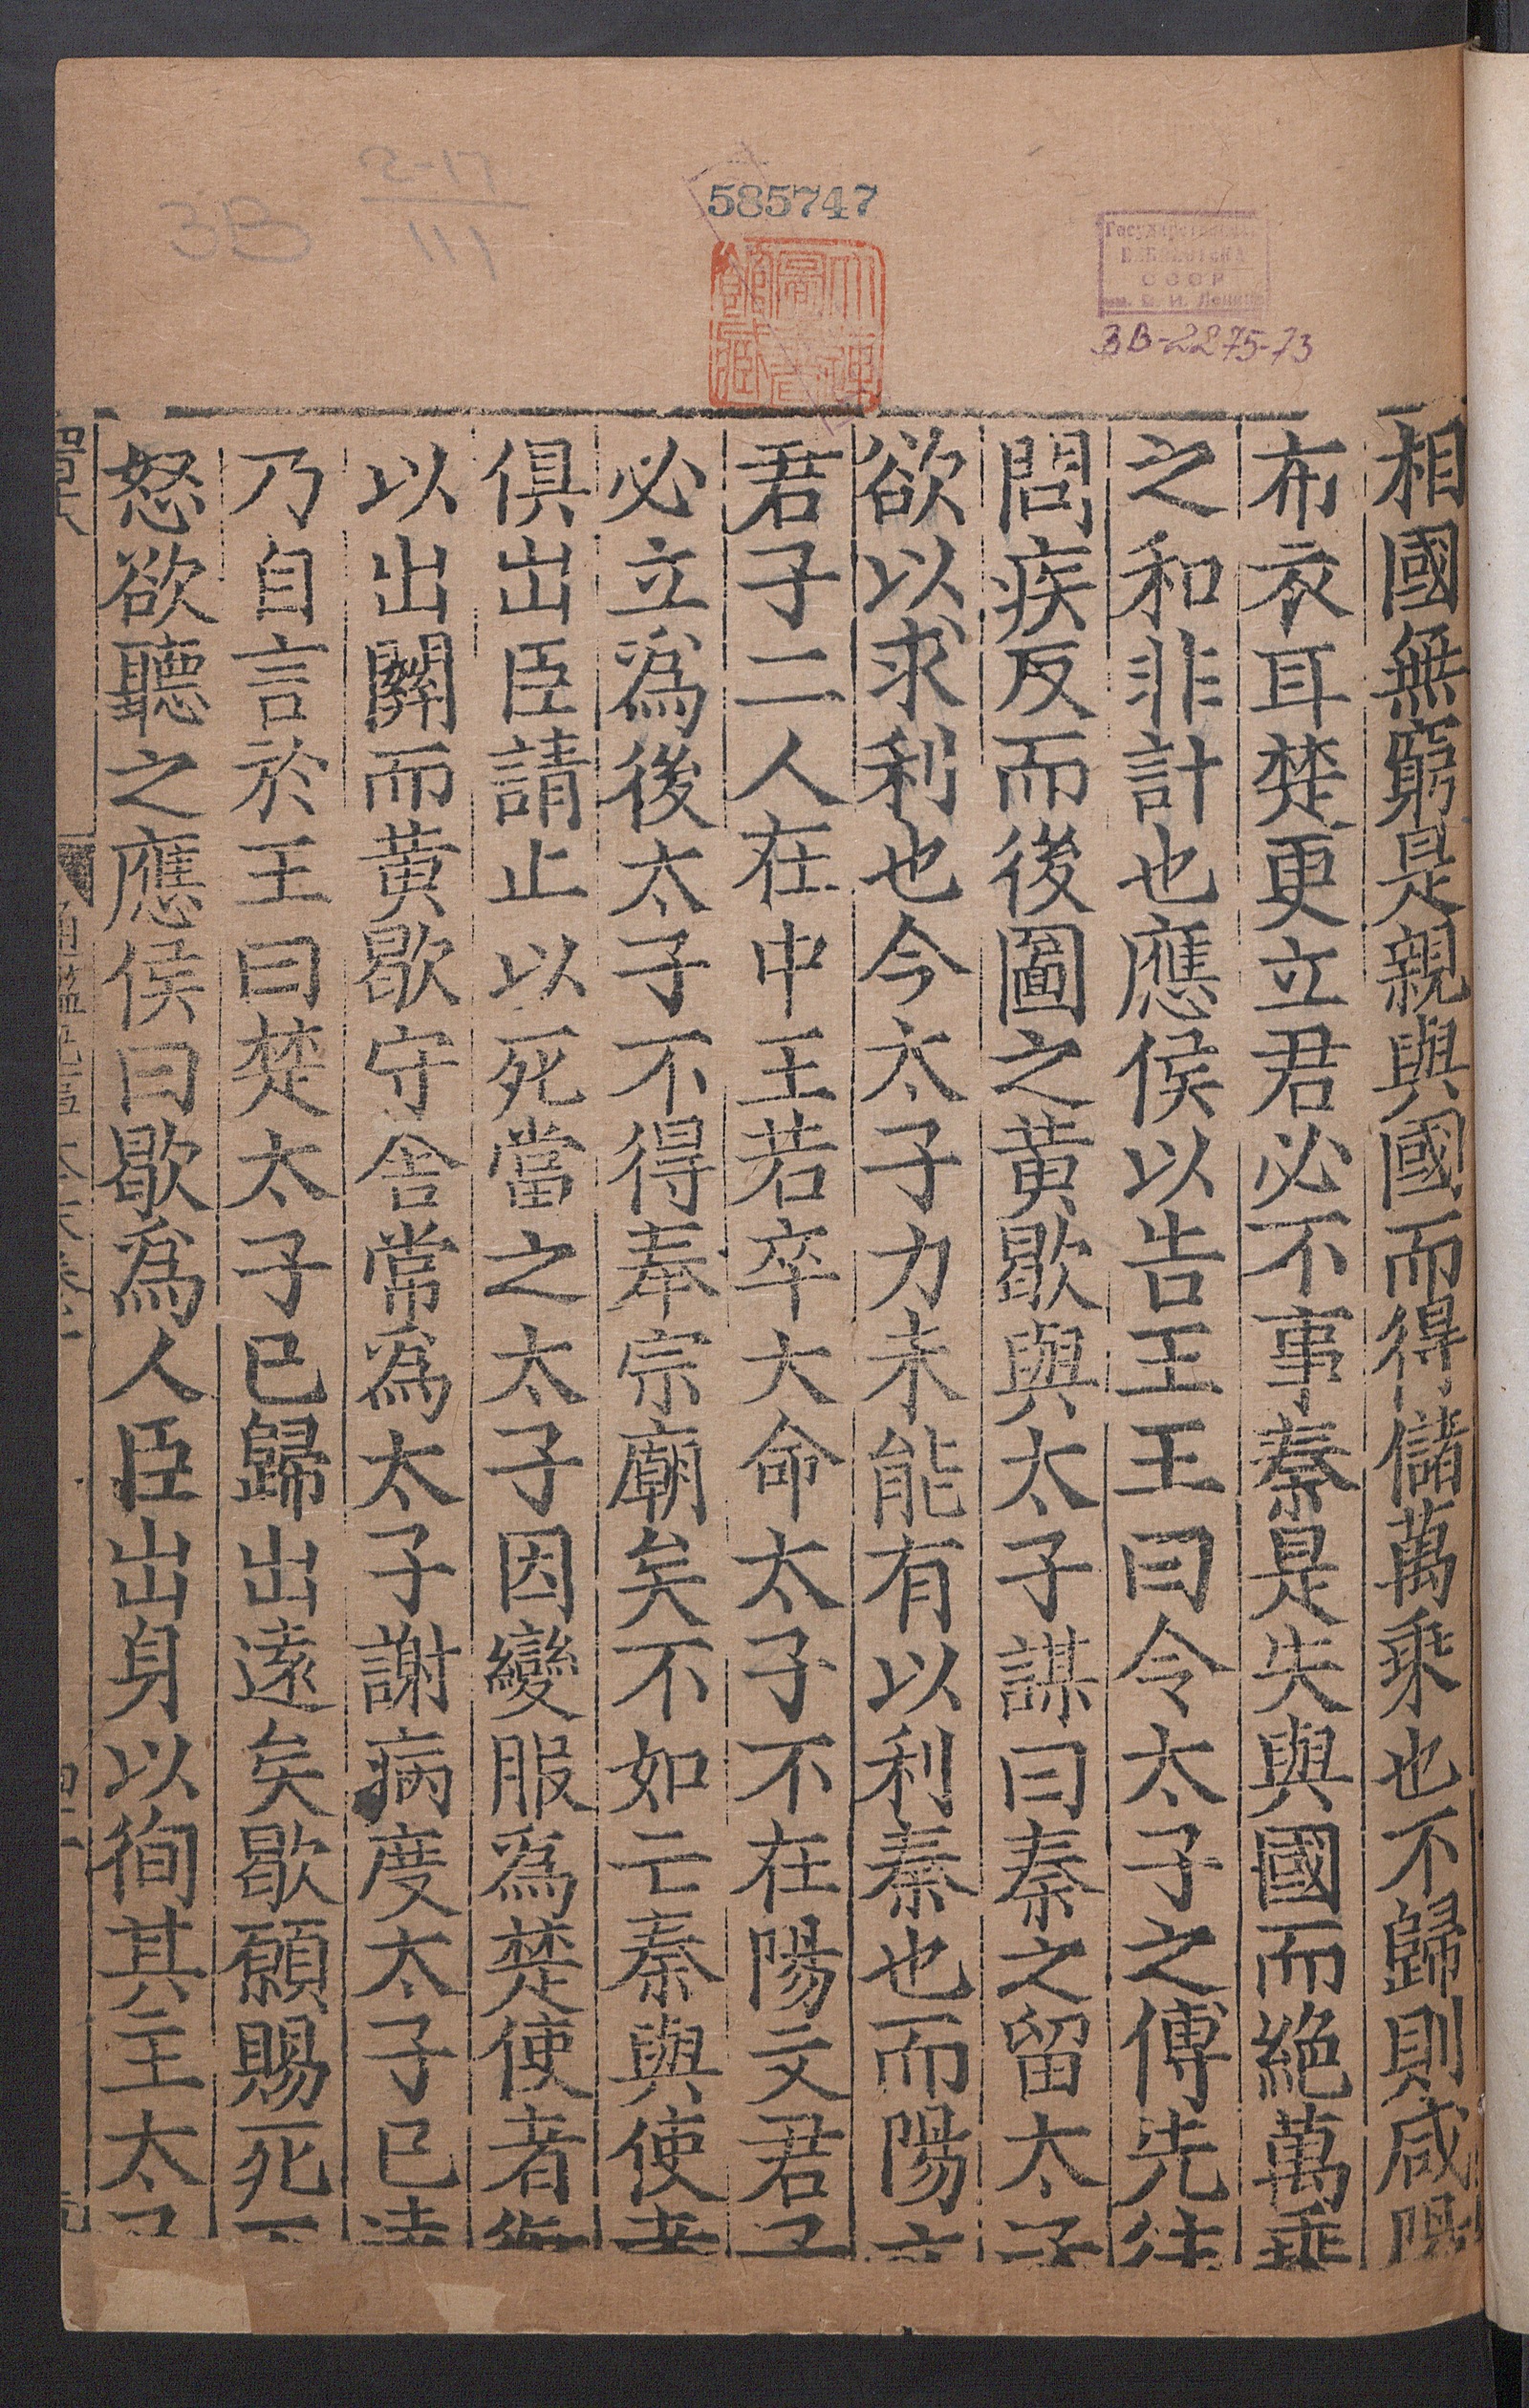 2-17
3B
111
585747
Государственная
БИБЛИОТЕКА
СССР
им. В. И. Ленина
3В-2275-73
相國無窮是親與國而得儲萬乘也不歸則咸陽
布衣耳楚更立君必不事秦是失與國而絶萬乘
之和非計也應侯以告王王曰令太子之傅先往
問疾反而後圖之黄歇與太子謀曰秦之留太子
欲以求利也今太子力未能有以利秦也而陽文
君子二人在中王若卒大命太子不在陽文君子
必立爲後太子不得奉宗廟矣不如亡秦與使者
俱出臣請止以死當之太子因變服爲楚使者御
以出關而黄歇守舍常爲太子謝病度太子已遠
乃自言於王曰楚太子已歸出逺矣歇願賜死王
怒欲聽之應侯曰歇爲人臣出身以徇其主太子